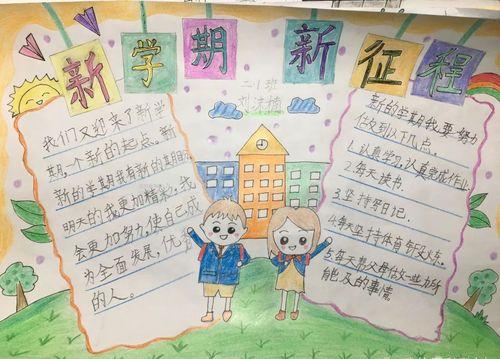 新学期新征程
二1班
刘沫楠
我们又迎来了新学
期,一个新的起点。新
新的学期我有新的期盼,
明天的我更加精彩,我
会更加努力,使自己成
为全面发展,优秀
的人。
新的学期我要努力
做到以下几点。
1.认真学习,认真完成作业。
2.每天读书.
3.坚持写日记.
4.每天坚持体育锻炼.
5.每天帮父母做一些力所
能及的事情